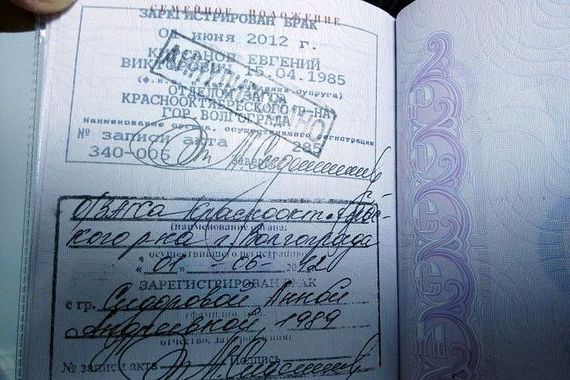 СЕМЕЙНОЕ ПОЛОЖЕНИЕ
ЗАРЕГИСТРИРОВАН БРАК
01 ИЮНЯ 2012 Г.
ЕВГЕНИЙ
15.04.1985
ОТДЕЛОМ
КРАСНООКТЯБРЬСКОГО Р-НА
ГОР. ВОЛГОГРАДА
наименование органа, осуществившего регистрацию
№ записи акта 285
340-006
О/ЗАГСа Краснооктябрьс-
кого р-на г. Волгограда
(наименование органа,
осуществившего регистрацию)
" 01 " - 06 - 20 12
ЗАРЕГИСТРИРОВАН БРАК
с гр. Сидоровой Анной
Андреевной, 1989
отчество, дата рождения
№ записи акта Подпись